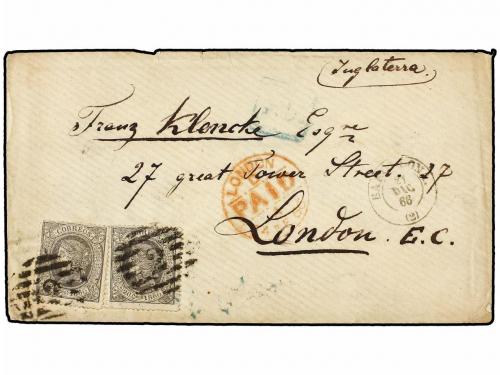 Inglaterra.
Franz Klencke Esqre
27 great Tower Street. 27
London. E.C.
LONDON
PAID
BARCELONA
DEC
66
(2)
CORREOS